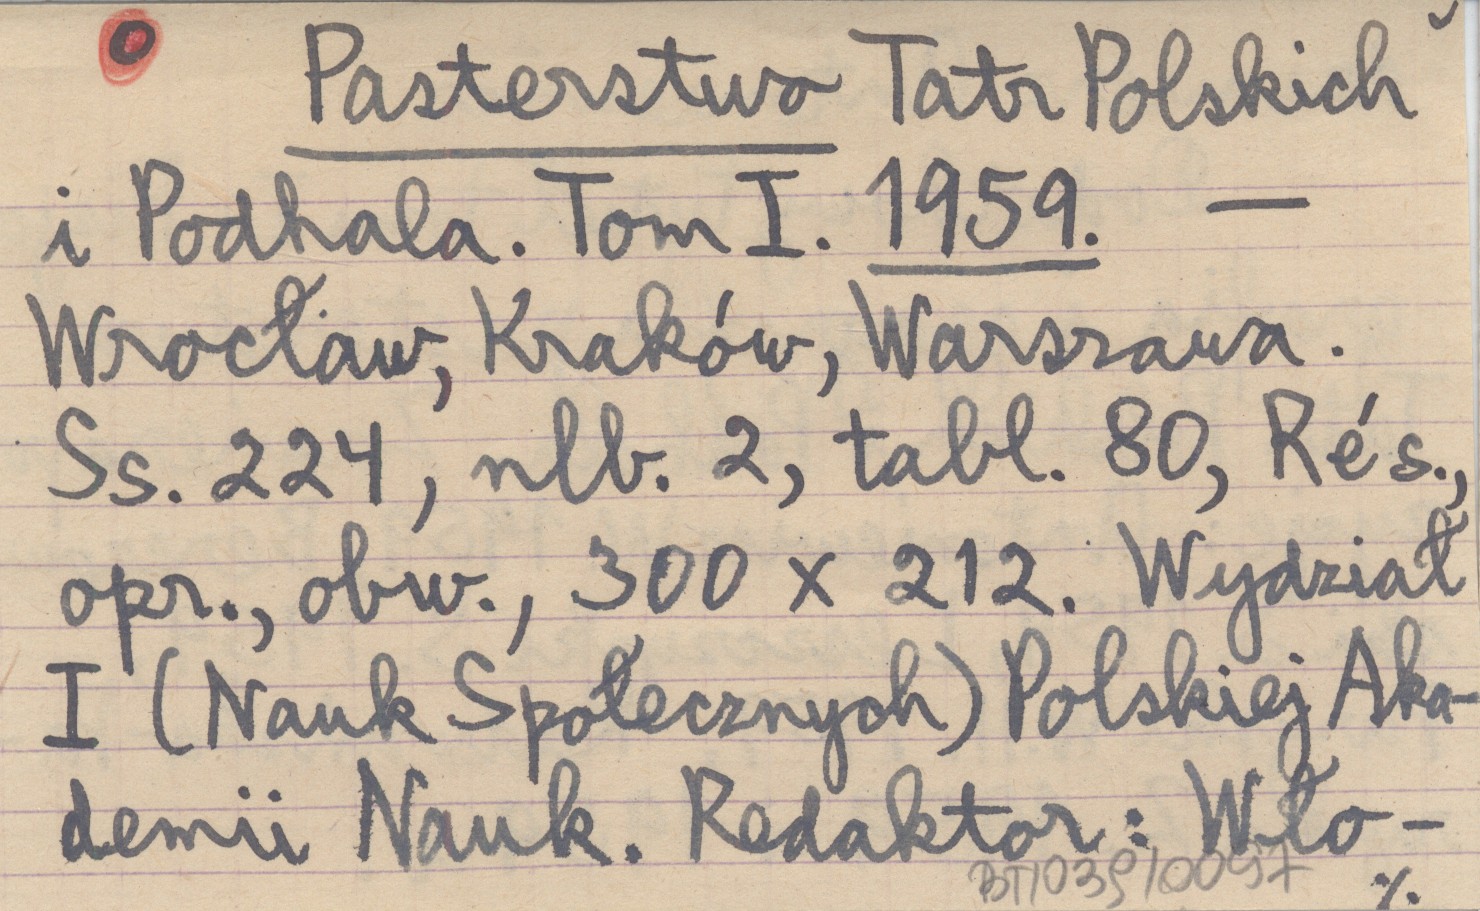 Pasterstwo Tatr Polskich
i Podhala. Tom I. 1959. —
Wrocław, Kraków, Warszawa.
Ss. 224, nlb. 2, tabl. 80, Rés.,
opr., obw., 300 x 212. Wydział
I (Nauk Społecznych) Polskiej Aka-
demii Nauk. Redaktor: Wło-
BT/039/0097
./.